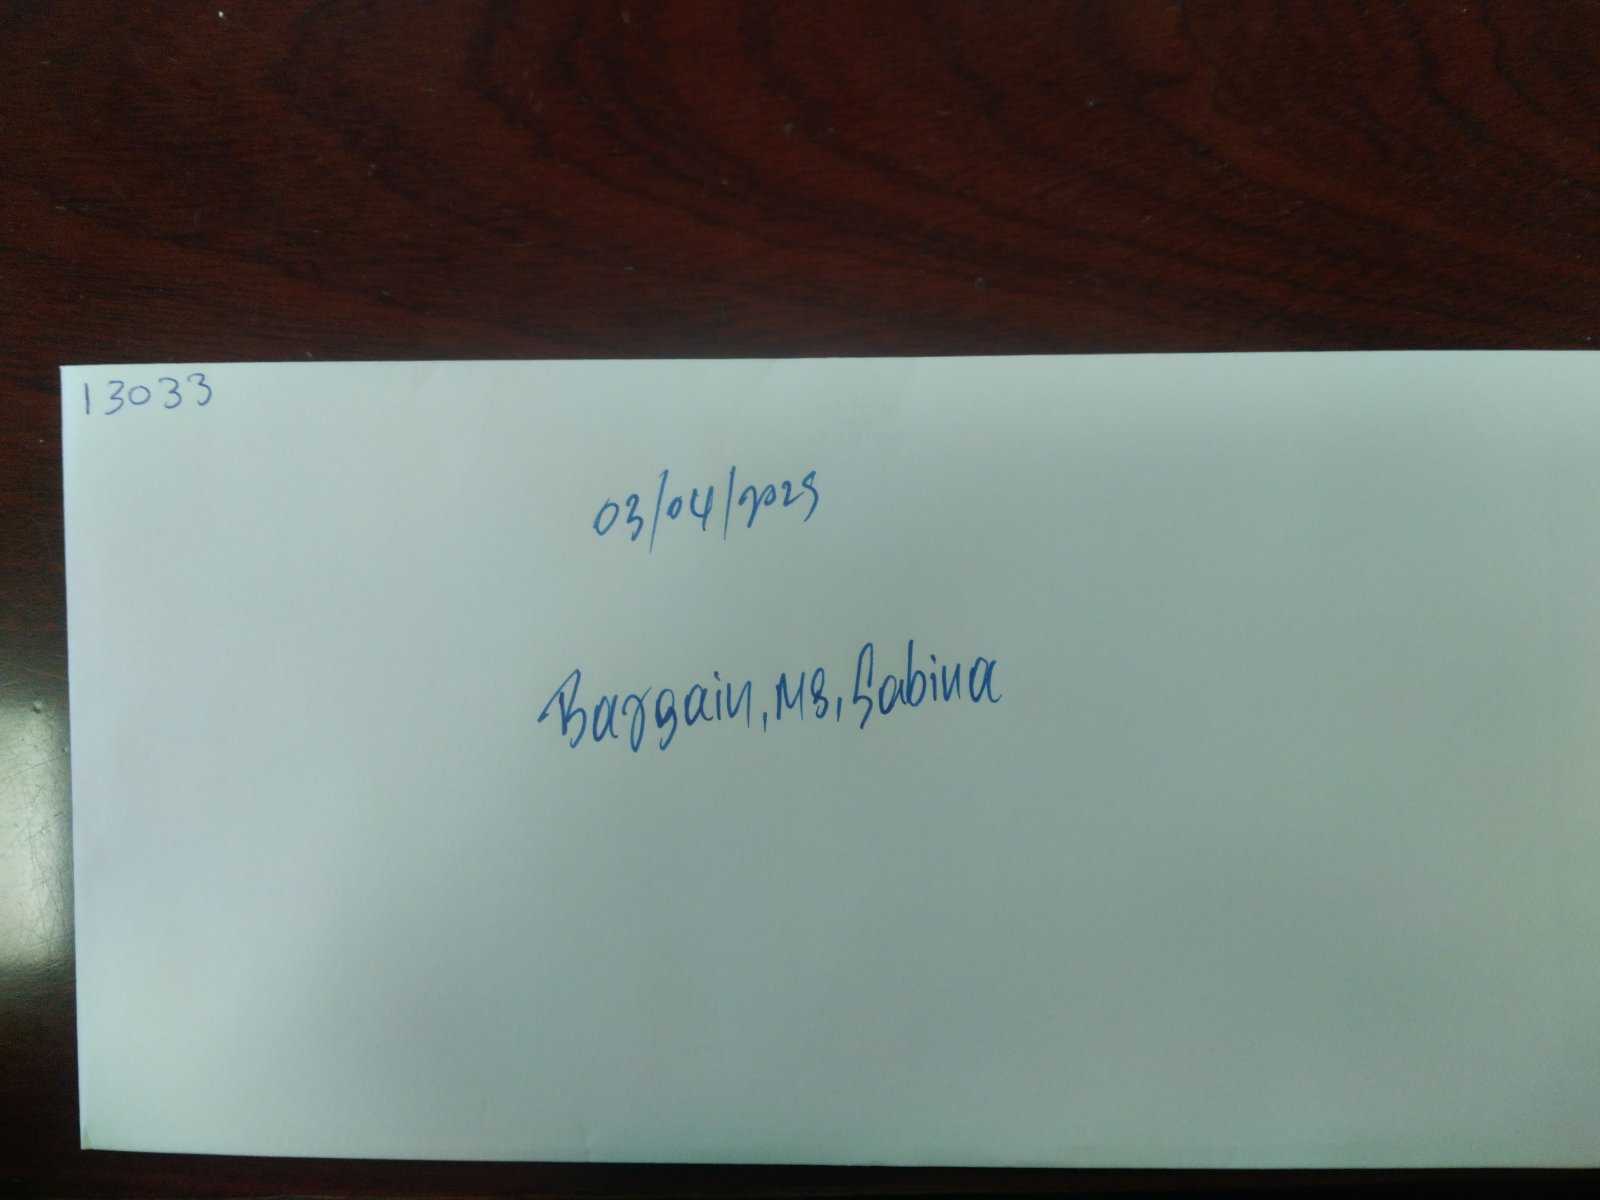 13033
03/04/2025
Bargain, MS, Sabina